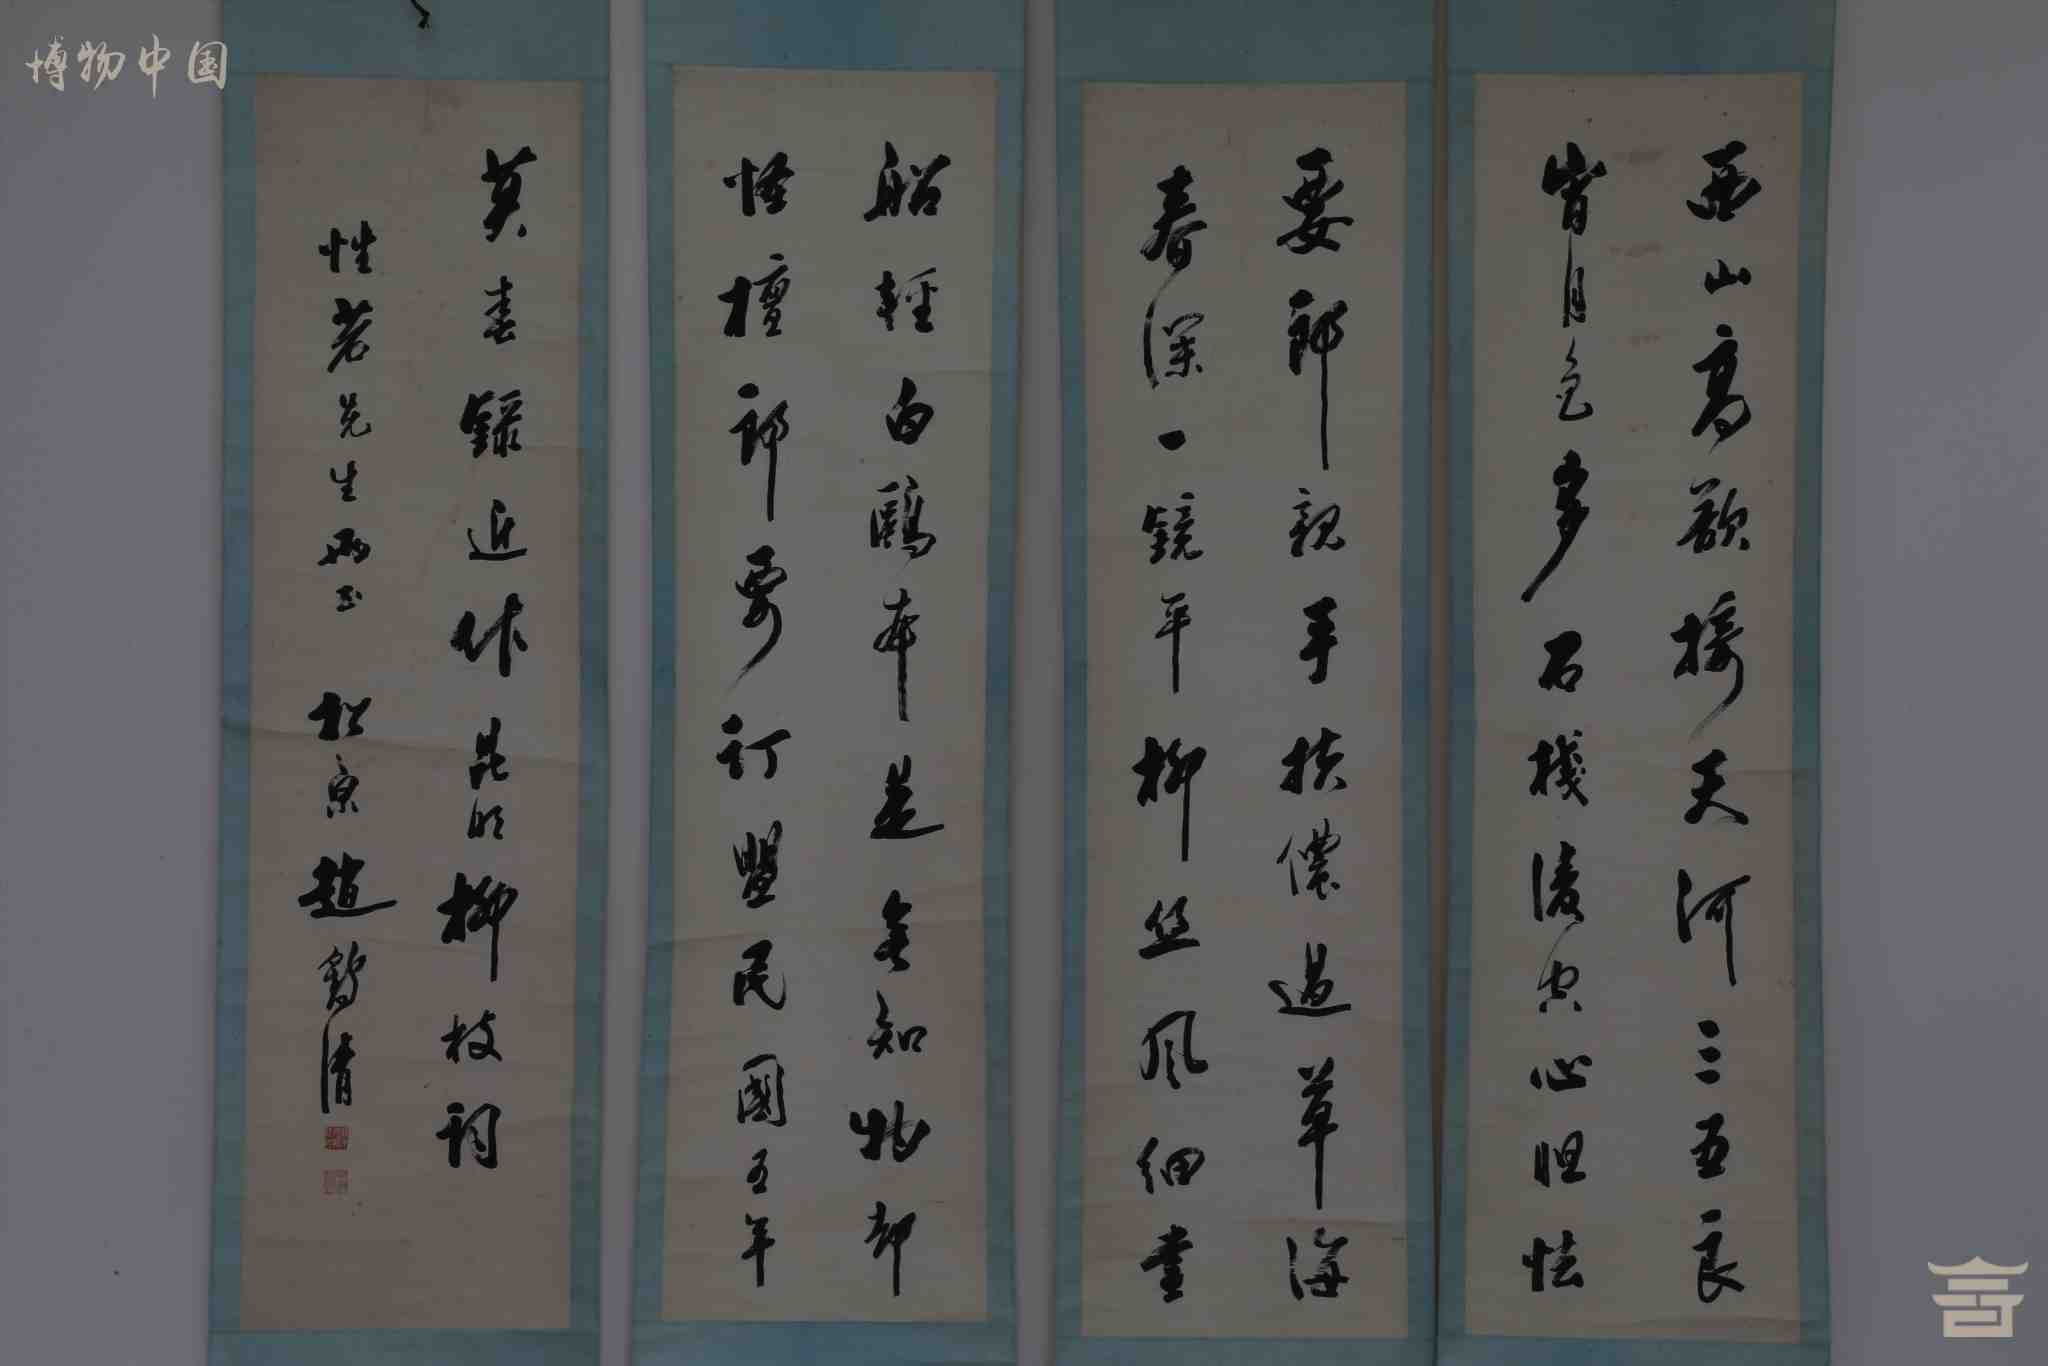 博物中国
西山高欲接天河三五良
宵月色多石栈凌空心胆怯
要郎亲手扶侬过草海
春深一镜平柳丝风细画
船輕白鷗本是無知物却
怪檀郎要訂盟民國五年
莫春錄近作昆明柳枝詞
性老先生两正 松泉趙鶴清